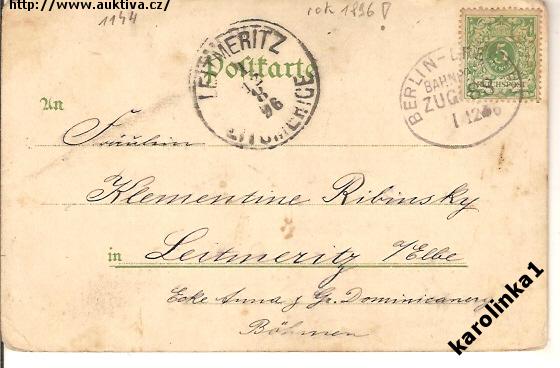 http://www.auktiva.cz/
1144
rok 1896!
Postkarte
LEITMERITZ
LITOMĚŘICE
96
BERLIN
BAHNPOST
ZUG
5
REICHSPOST
An
Fräulein
Klementine Ribinsky
in Leitmeritz a/Elbe
Ecke Anna & Gr. Dominicanerg
Böhmen
karolinka1